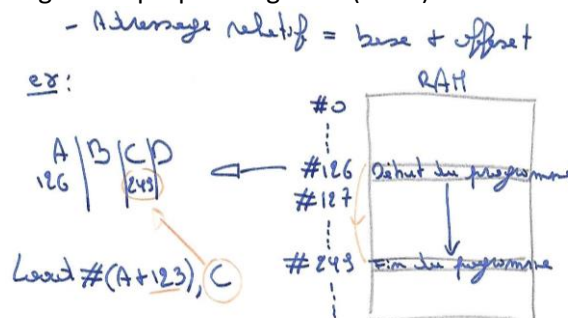 - Adressage relatif = base + offset
ex:
RAM
#0
A | B | C | D
126 249
#126 Début du programme
#127
#249 Fin du programme
Load #(A+123), C